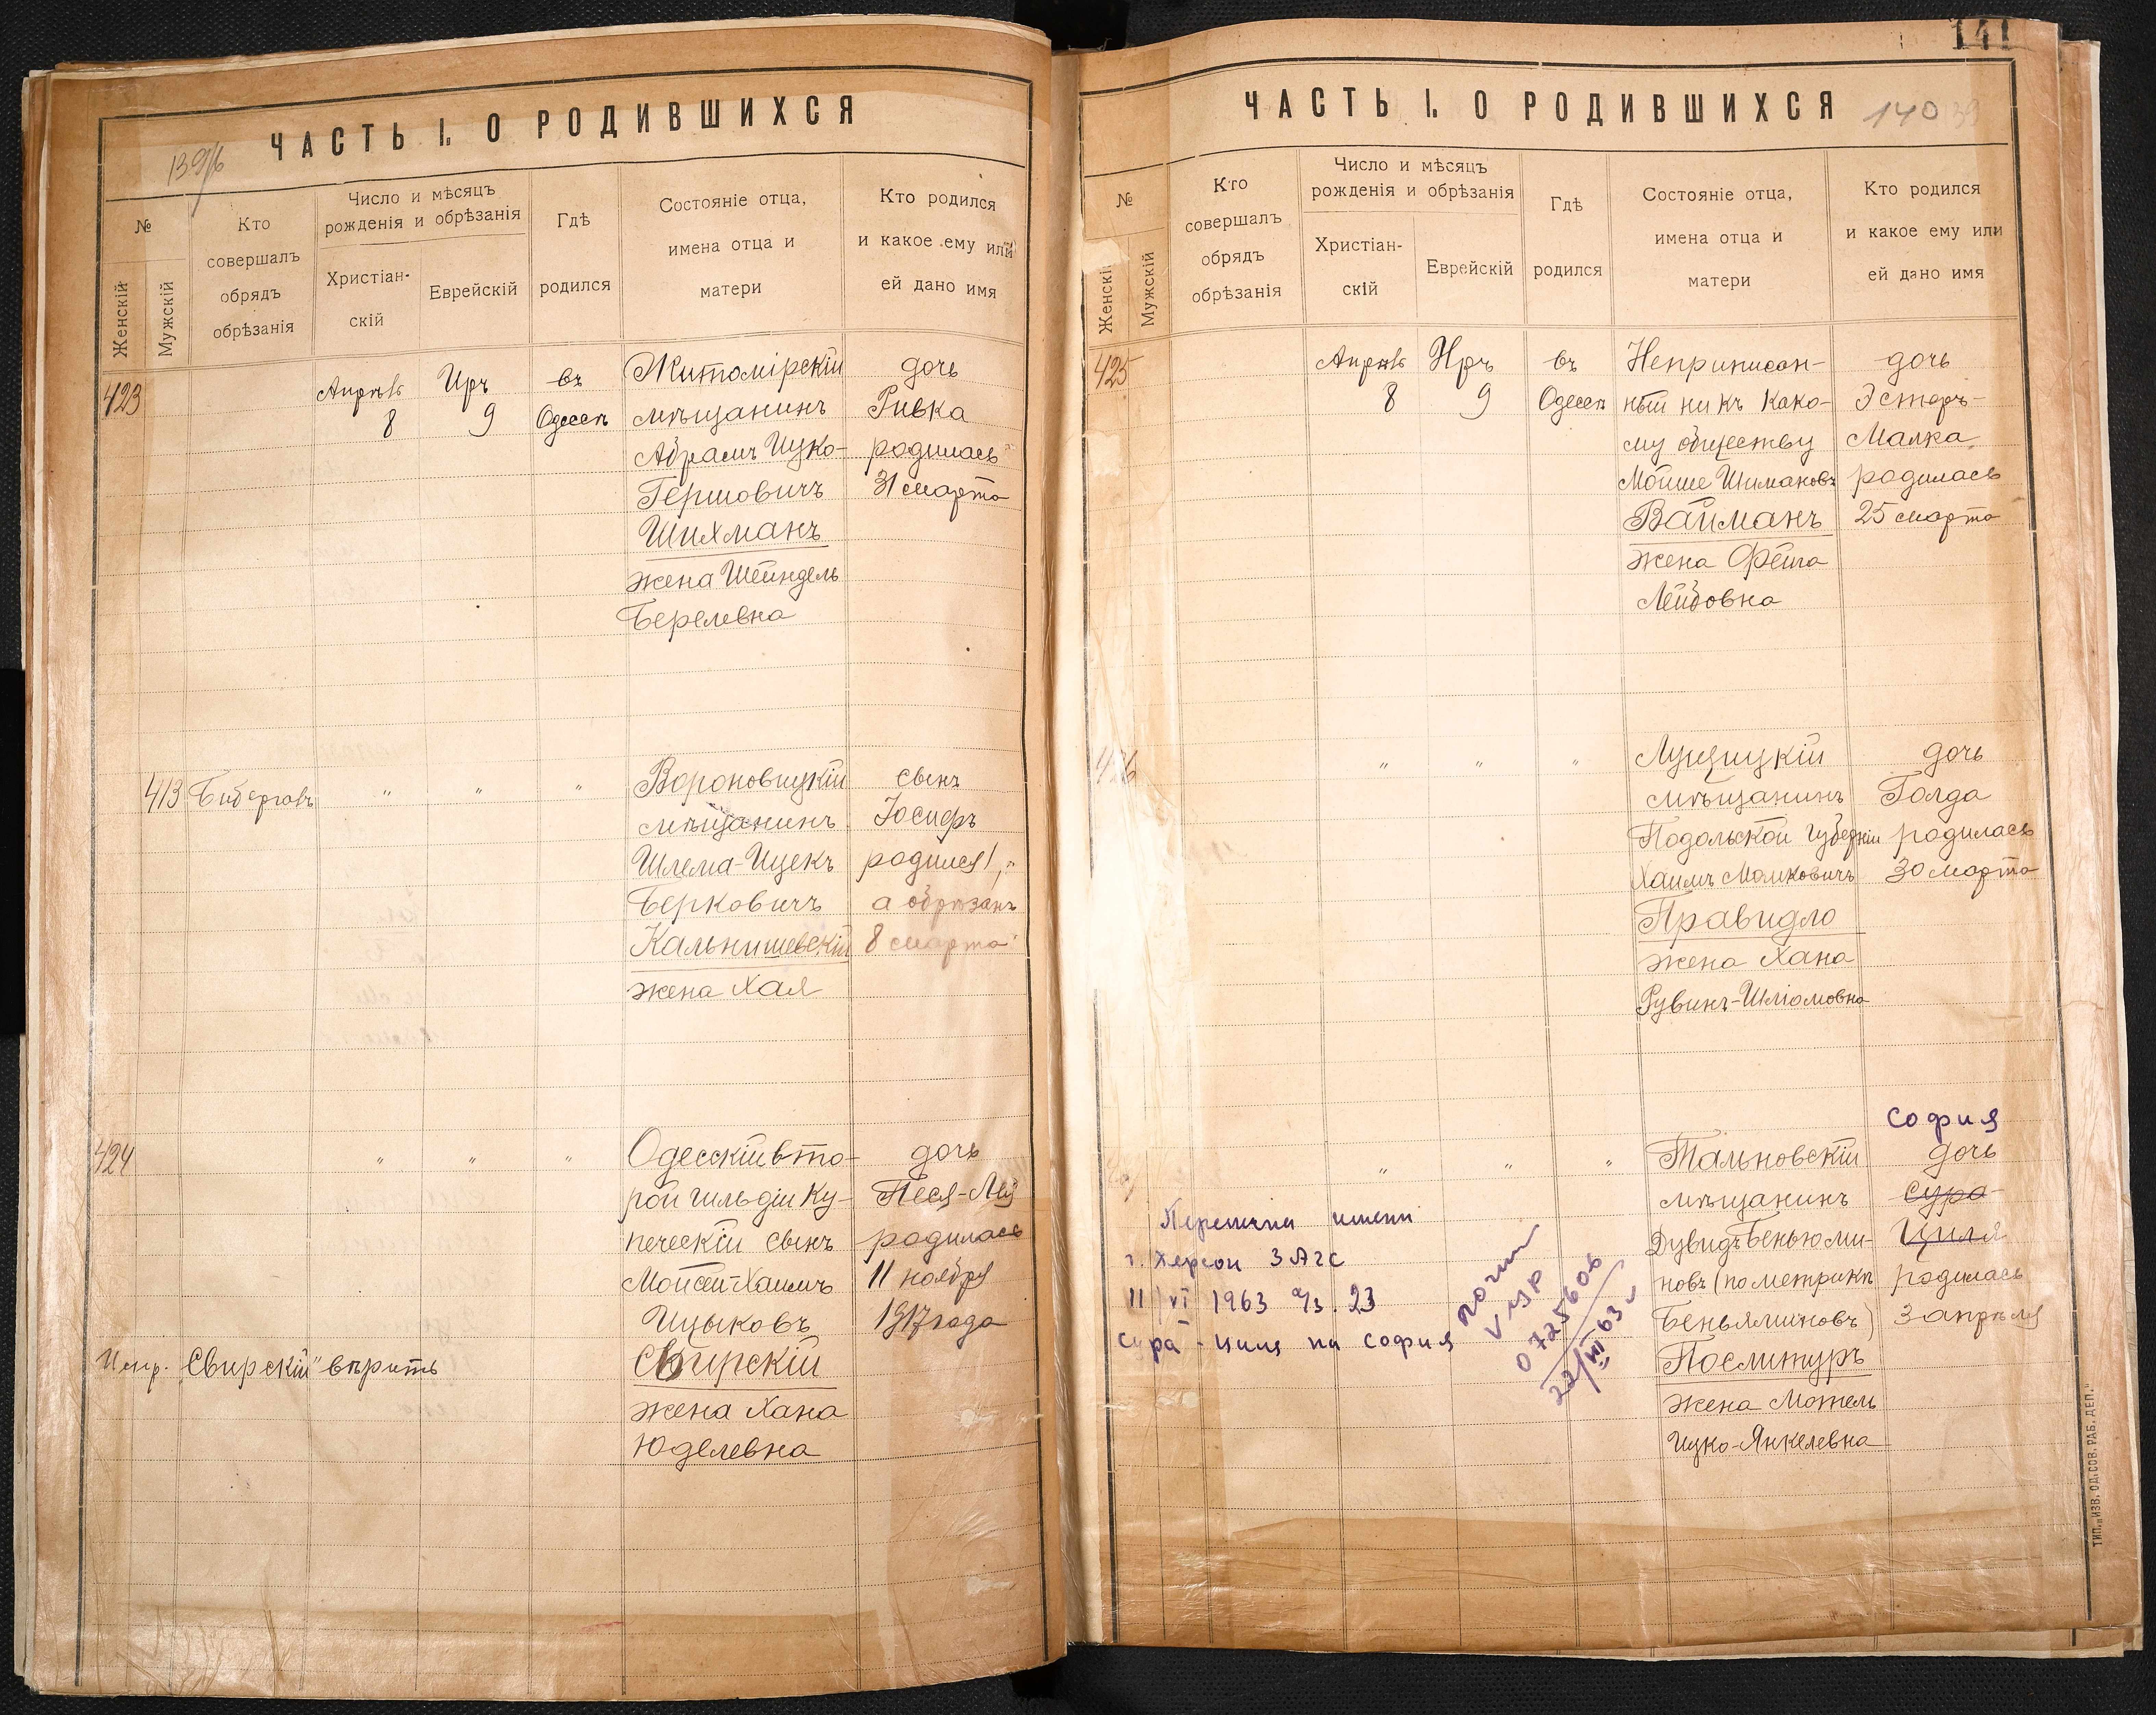 ЧАСТЬ I. О РОДИВШИХСЯ
139/б
№
Женскій
Мужскій
Кто
совершалъ
обрядъ
обрѣзанія
Число и мѣсяцъ
рожденія и обрѣзанія
Христіан-
скій
Еврейскій
Гдѣ
родился
Состояніе отца,
имена отца и
матери
Кто родился
и какое ему или
ей дано имя
423
Апрѣль
8
Иръ
9
въ
Одессѣ
Житомірскій
мѣщанинъ
Абрамъ Ицко-
Гершовичъ
Шихманъ
жена Шейндель
Берелевна
дочь
Ривка
родилась
31 марта
413
" " "
Вороновицкій
мѣщанинъ
Шлема-Ицекъ
Берковичъ
Кальнишевскій
жена Хая
сынъ
Іосифъ
родился 1,
а обрѣзанъ
8 марта
424
" " "
Одесскій вто-
рой гильдіи ку-
печескій сынъ
Мойсей-Хаимъ
Ицыковъ
Свирскій
жена Хана
Юделевна
дочь
Песя-Лея
родилась
11 ноября
1917 года
Испр. "Свирскій" вѣрить
141
ЧАСТЬ I. О РОДИВШИХСЯ
140
№
Женскій
Мужскій
Кто
совершалъ
обрядъ
обрѣзанія
Число и мѣсяцъ
рожденія и обрѣзанія
Христіан-
скій
Еврейскій
Гдѣ
родился
Состояніе отца,
имена отца и
матери
Кто родился
и какое ему или
ей дано имя
425
Апрѣль
8
Иръ
9
въ
Одессѣ
Неприписан-
ный ни къ како-
му обществу
Мойше Шимановъ
Вайманъ
жена Фейга
Лейбовна
дочь
Эстеръ-
Малка
родилась
25 марта
426
" " "
Луцицкій
мѣщанинъ
Подольской губерніи
Хаимъ Мошковичъ
Правидло
жена Хана
Рувинъ-Шліомовна
дочь
Голда
родилась
30 марта
" " "
Тальновскій
мѣщанинъ
Дувидъ Беньюми-
новъ (по метрикѣ
Беньяминовъ)
Послитуръ
жена Мотель
Ицко-Янкелевна
София
дочь
Сура
Циля
родилась
3 апрѣля
Перемена имени
г. Херсон ЗАГС
11/VI 1963 а/з. 23
Сура - Циля на София
0725606
22/VII 63
ТИП. „ИЗВ. ОД. СОВ. РАБ. ДЕП."